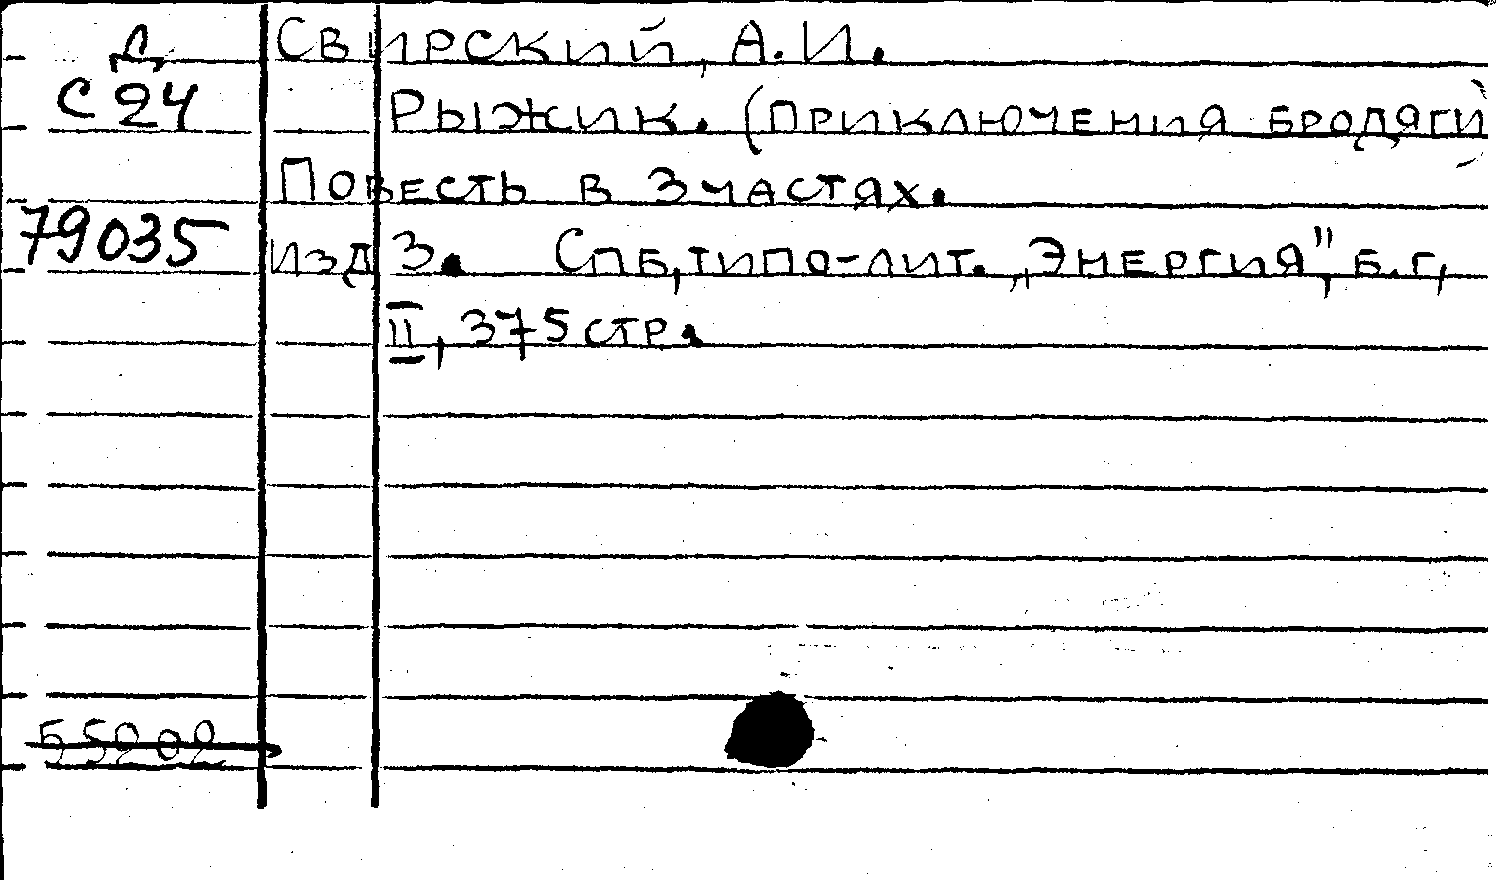 Д
Свирский, А.И.
С24
Рыжик. (Приключения бродяги)
Повесть в 3 частях.
79035
Изд 3. Спб, типо-лит. „Энергия", б.г,
II, 375 стр.
55202